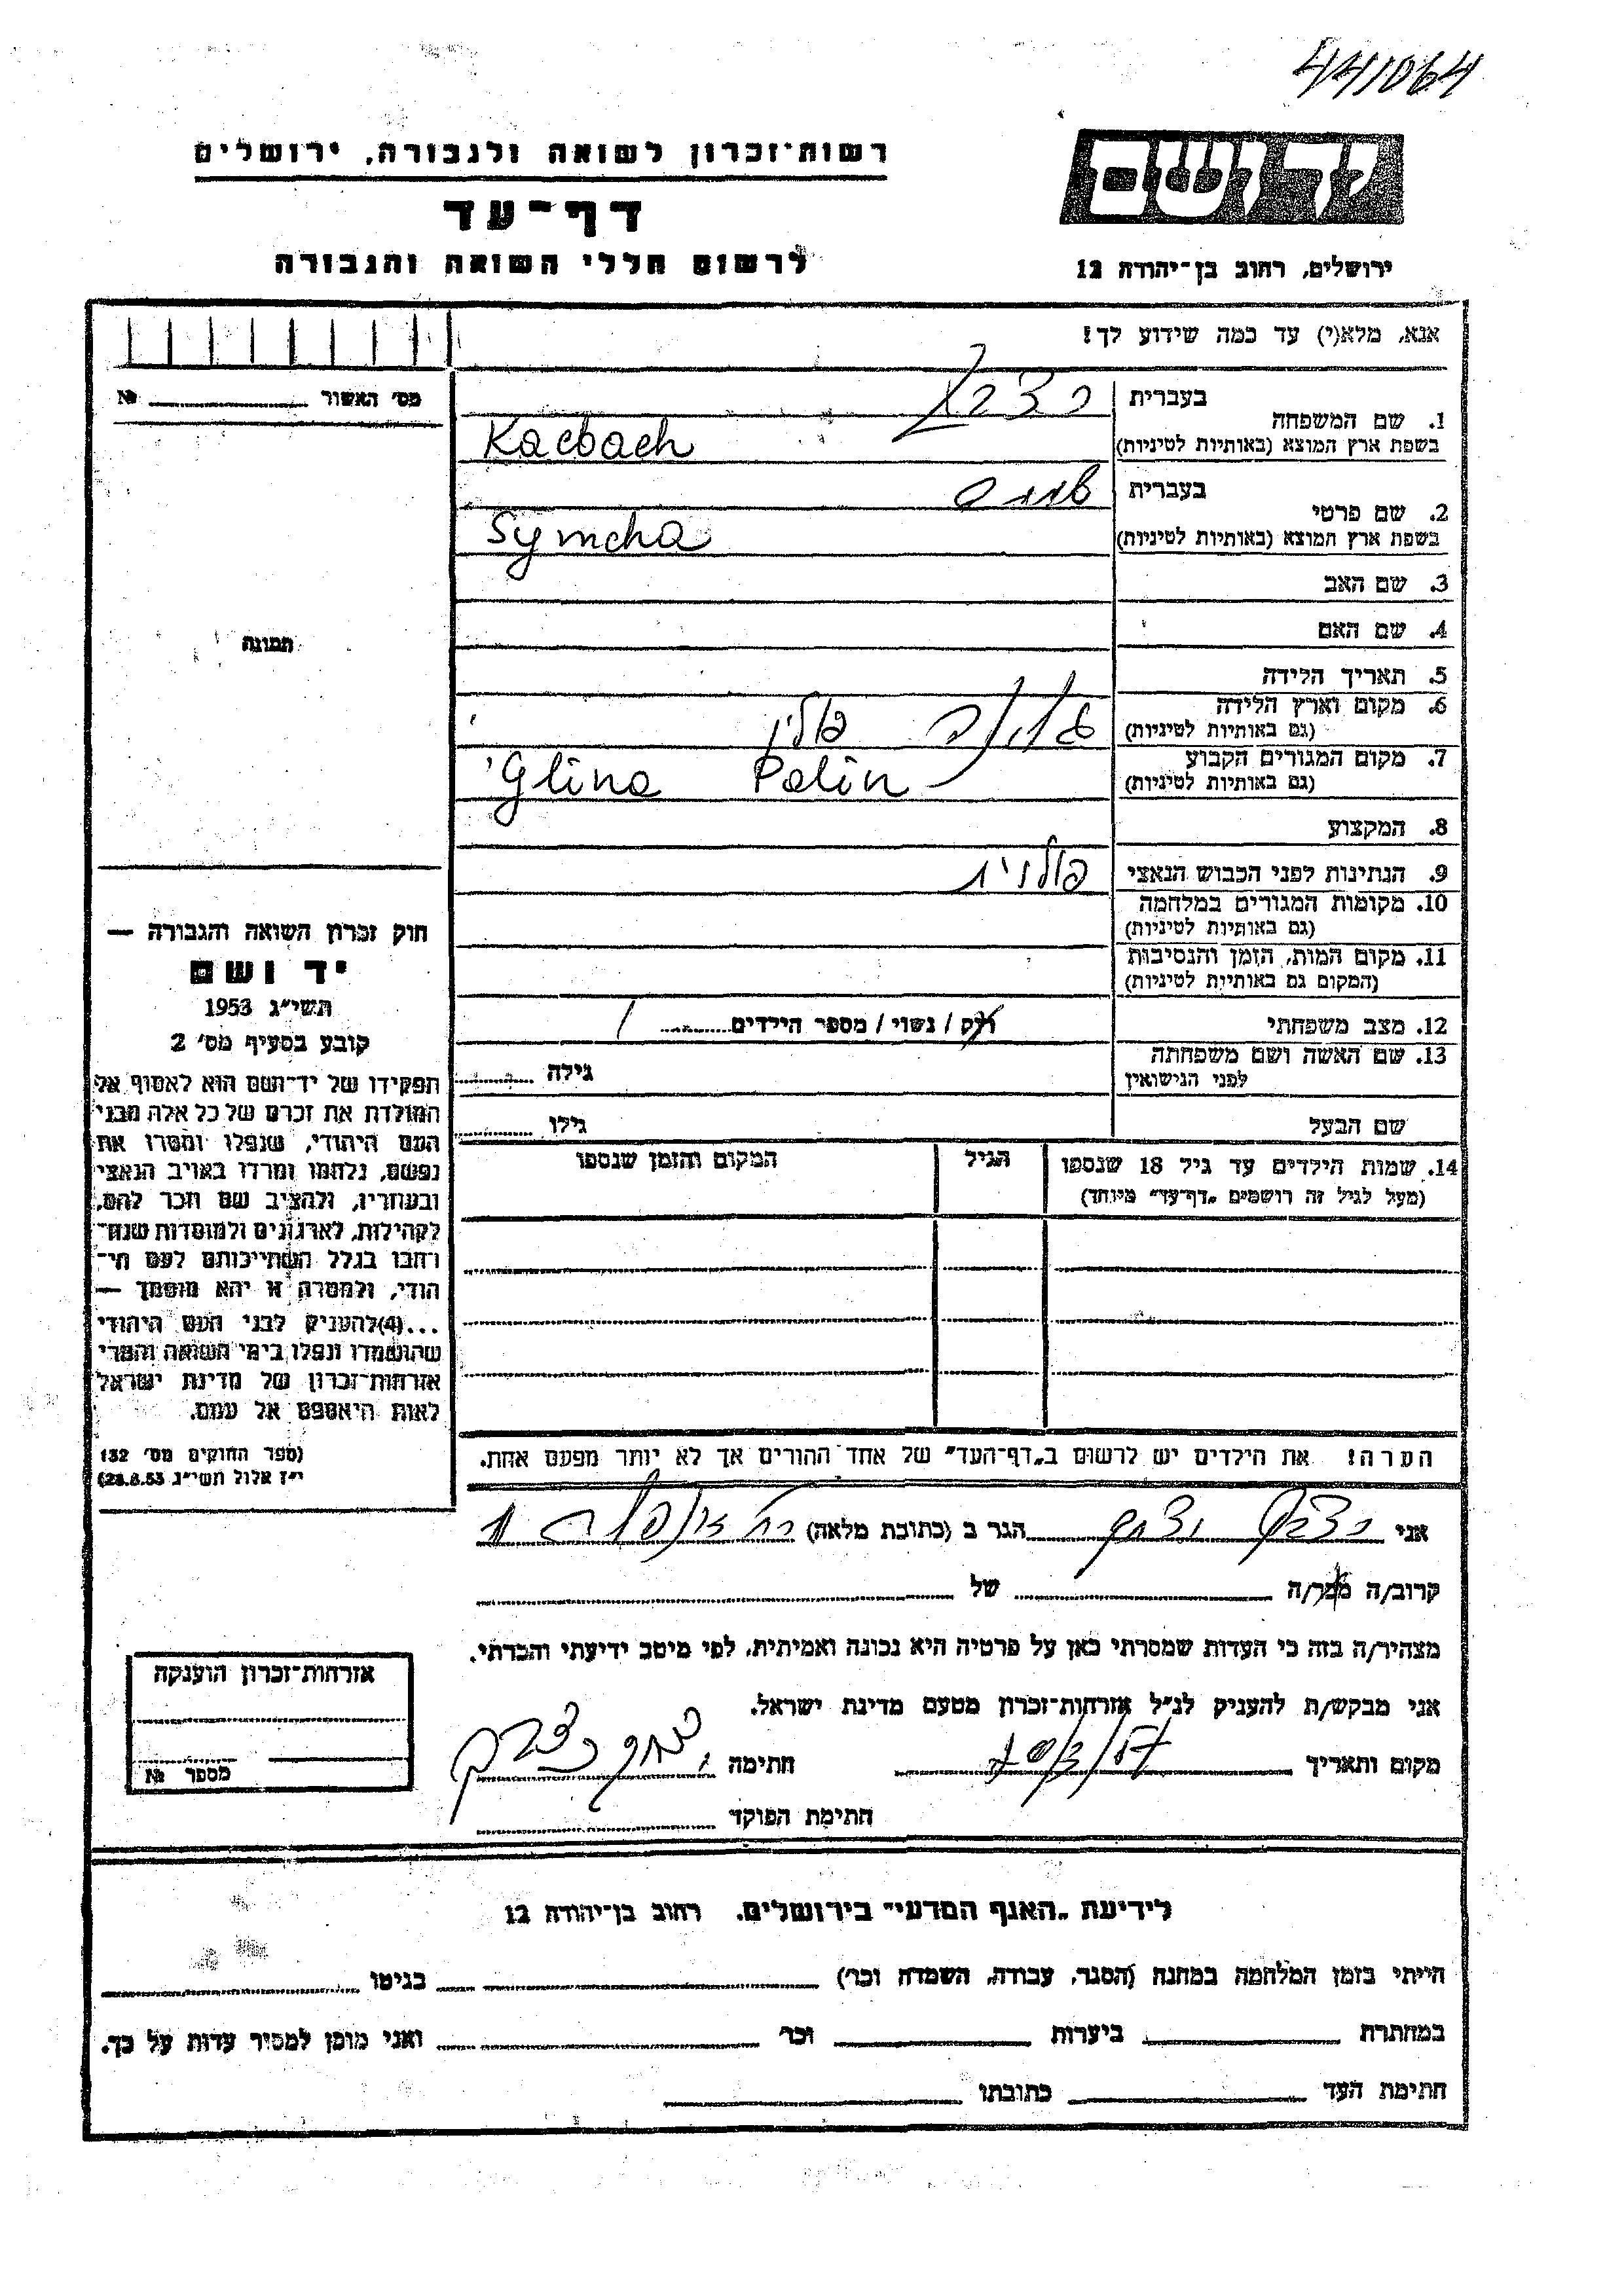 441064
יד ושם
רשות־זכרון לשואה ולגבורה, ירושלים
דף־עד
לרשום חללי השואה והגבורה
ירושלים, רחוב בן־יהודה 12
אנא, מלא(י) עד כמה שידוע לך!
מס' האשור № 
תמונה
1. שם המשפחה
בעברית
בשפת ארץ המוצא (באותיות לטיניות) Kacbach
2. שם פרטי
בעברית
בשפת ארץ המוצא (באותיות לטיניות) Symcha
3. שם האב
4. שם האם
5. תאריך הלידה
6. מקום וארץ הלידה
(גם באותיות לטיניות) פולין
7. מקום המגורים הקבוע
(גם באותיות לטיניות) Glina Polin
8. המקצוע
9. הנתינות לפני הכבוש הנאצי פולנית
10. מקומות המגורים במלחמה
(גם באותיות לטיניות)
11. מקום המות, הזמן והנסיבות
(המקום גם באותיות לטיניות)
12. מצב משפחתי רוק / נשוי / מספר הילדים
13. שם האשה ושם משפחתה
לפני הנישואין גילה
שם הבעל גילו
14. שמות הילדים עד גיל 18 שנספו
(מעל לגיל זה רושמים „דף־עד" מיוחד)
הגיל
המקום והזמן שנספו
חוק זכרון השואה והגבורה —
יד ושם
תשי"ג 1953
קובע בסעיף מס' 2
תפקידו של יד־ושם הוא לאסוף אל
המולדת את זכרם של כל אלה מבני
העם היהודי, שנפלו ומסרו את
נפשם, נלחמו ומרדו באויב הנאצי
ובעוזריו, ולהציב שם וזכר להם,
לקהילות, לארגונים ולמוסדות שנח־
רבו בגלל השתייכותם לעם הי־
הודי, ולמטרה זו יהא מוסמך —
...(4)להעניק לבני העם היהודי
שהושמדו ונפלו בימי השואה והמרי
אזרחות־זכרון של מדינת ישראל
לאות היאספם אל עמם.
(ספר החוקים מס' 132
י"ז אלול תשי"ג 28.8.53)
הערה! את הילדים יש לרשום ב„דף־העד" של אחד ההורים אך לא יותר מפעם אחת.
אני הגר ב (כתובת מלאה)
קרוב/ה מכר/ה של
מצהיר/ה בזה כי העדות שמסרתי כאן על פרטיה היא נכונה ואמיתית, לפי מיטב ידיעתי והכרתי.
אני מבקש/ת להעניק לנ"ל אזרחות־זכרון מטעם מדינת ישראל.
מקום ותאריך חתימה
חתימת הפוקד
אזרחות־זכרון הוענקה
מספר №
לידיעת „האגף המדעי" בירושלים, רחוב בן־יהודה 12
הייתי בזמן המלחמה במחנה (הסגר, עבודה, השמדה וכו') בגיטו
במחתרת ביערות וכו' ואני מוכן למסור עדות על כך.
חתימת העד כתובתו